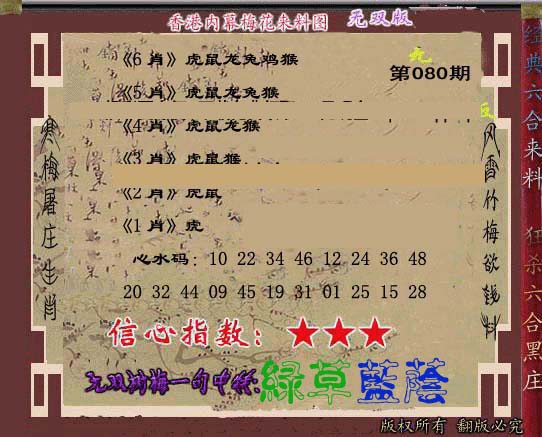 香港内幕梅花来料图 无双版
第080期
《6 肖》虎鼠龙兔鸡猴
《5 肖》虎鼠龙兔猴
《4 肖》虎鼠龙猴
《3 肖》虎鼠猴
《2 肖》虎鼠
《1 肖》虎
心水码：10 22 34 46 12 24 36 48
20 32 44 09 45 19 31 01 25 15 28
信心指数：★★★
无双梅一句中特:綠草藍蔭
寒梅屠庄生肖
风香竹梅欲钱料
经典六合来料 狂杀六合黑庄
版权所有 翻版必究